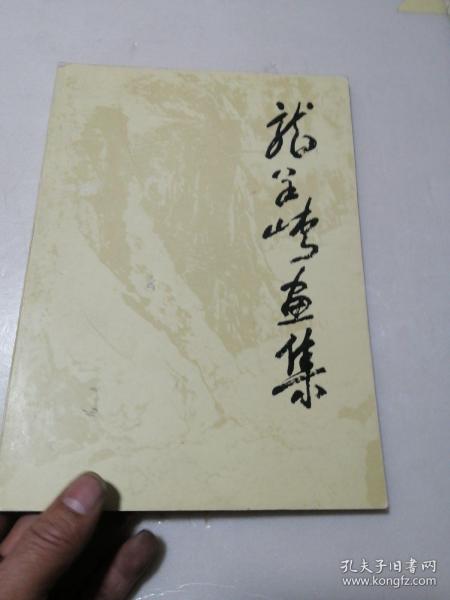 龙全崎画集
孔夫子旧书网
www.kongfz.com